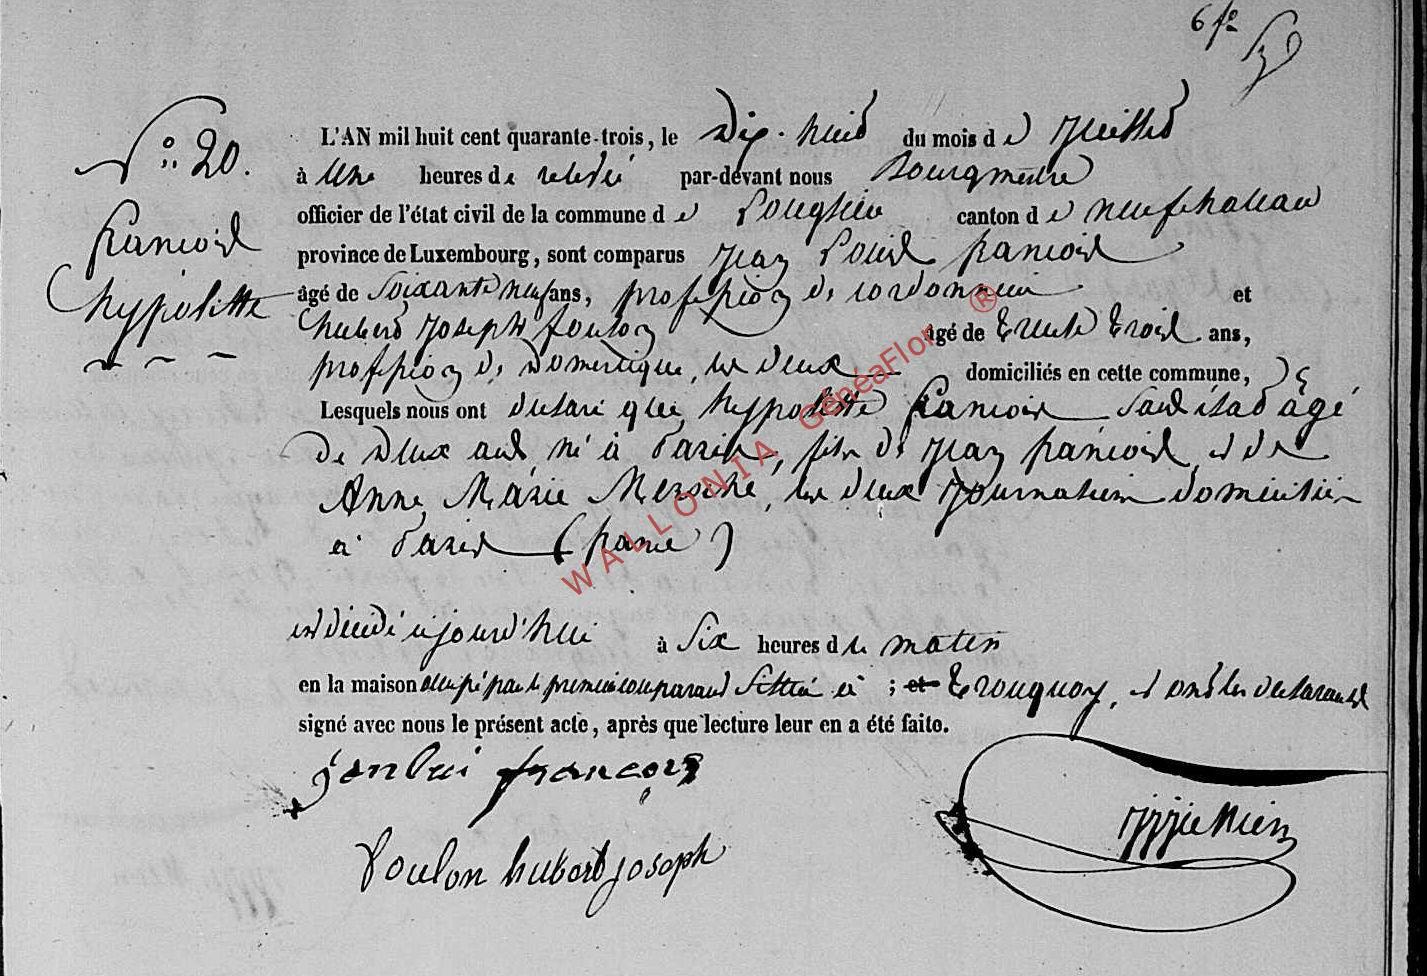 6 fo
N° 20.
francois
hypolitte
L'AN mil huit cent quarante-trois, le dix-huit du mois d e juillet
à une heures de relevé par-devant nous Bourgmestre
officier de l'état civil de la commune d e canton d e neufchateau
province de Luxembourg, sont comparus jean Louis francois
âgé de soixante neuf ans, profession de cordonnier et
hubert joseph foulon âgé de trente trois ans,
profession de Domestique, les deux domiciliés en cette commune,
Lesquels nous ont declaré que hypolitte francois âgé
de deux ans né à Paris, fils de jean francois et de
Anne Marie les deux journaliers domiciliés
à Paris (france)
est décédé aujourd'hui à six heures d u matin
en la maison occupé par le premier comparant Située à ; et Tronquoy, et ont les declarants
signé avec nous le présent acte, après que lecture leur en a été faite.
janlui francois
foulon hubert joseph
WALLONIA GénéaFlor ®